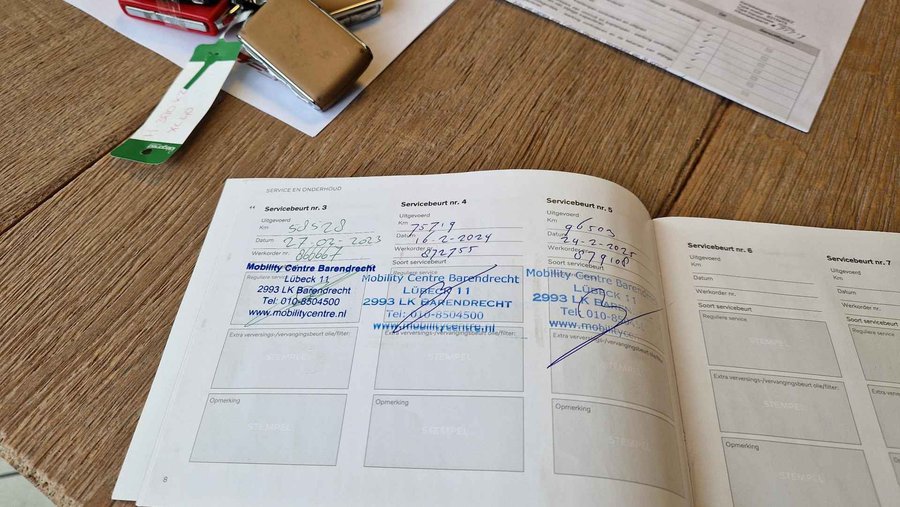 SERVICE EN ONDERHOUD
Servicebeurt nr. 3
Uitgevoerd
Km 58528
Datum 27-02-2023
Werkorder nr. 860667
Mobility Centre Barendrecht
Reguliere service
Lübeck 11
2993 LK Barendrecht
Tel: 010-8504500
www.mobilitycentre.nl
Extra verversings-/vervangingsbeurt olie/filter:
STEMPEL
Opmerking
STEMPEL
8
Servicebeurt nr. 4
Uitgevoerd
Km 75719
Datum 16-2-2024
Werkorder nr. 872755
Soort servicebeurt
Reguliere service
Mobility Centre Barendrecht
Lübeck 11
2993 LK Barendrecht
Tel: 010-8504500
www.mobilitycentre.nl
Extra verversings-/vervangingsbeurt olie/filter:
STEMPEL
Opmerking
STEMPEL
Servicebeurt nr. 5
Uitgevoerd
Km 96503
Datum 24-2-2025
Werkorder nr. 879108
Soort servicebeurt
Mobility Centre Barendrecht
Lübeck 11
2993 LK
Tel: 010-8504500
www.mobilitycentre.nl
Extra verversings-/vervangingsbeurt olie/filter:
STEMPEL
Opmerking
STEMPEL
Servicebeurt nr. 6
Uitgevoerd
Km
Datum
Werkorder nr.
Soort servicebeurt
Reguliere service
STEMPEL
Extra verversings-/vervangingsbeurt olie/filter:
STEMPEL
Opmerking
STEMPEL
Servicebeurt nr. 7
Uitgevoerd
Km
Datum
Werkorder nr.
Soort servicebeurt
Reguliere service
Opmerking